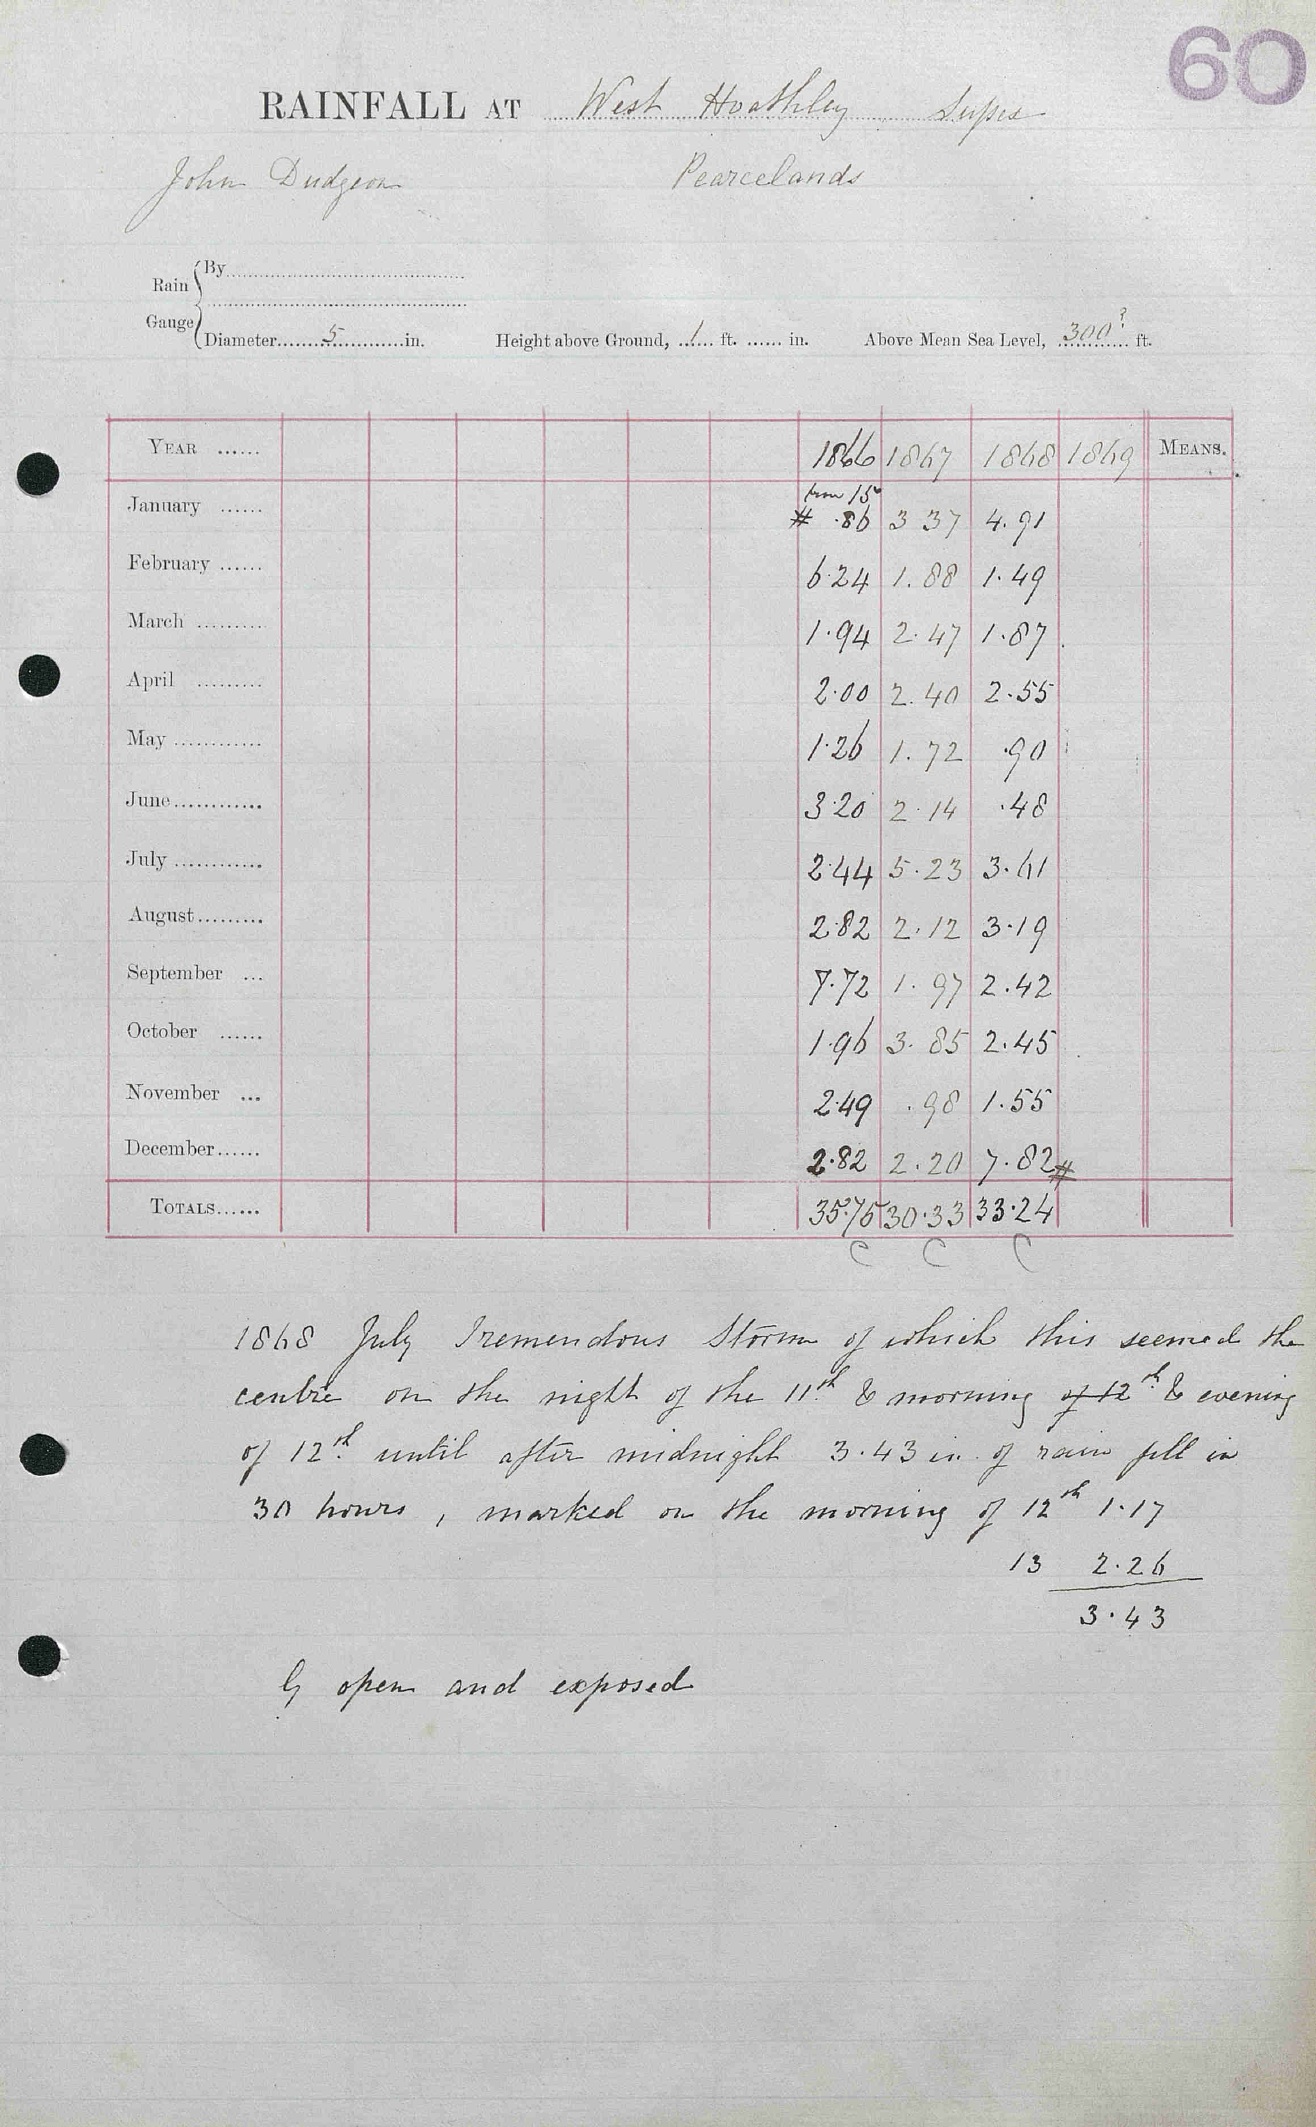 60
RAINFALL AT West Hoathley Sussex
John Dudgeon Pearcelands
Rain Gauge { By
Diameter 5 in. Height above Ground, 1 ft. in. Above Mean Sea Level, 300? ft.
YEAR 1866 1867 1868 1869 MEANS.
from 15
January # .86 3 37 4.91
February 6.24 1.88 1.49
March 1.94 2.47 1.87
April 2.00 2.40 2.55
May 1.26 1.72 .90
June 3.20 2.14 .48
July 2.44 5.23 3.61
August 2.82 2.12 3.19
September 7.72 1.97 2.42
October 1.96 3.85 2.45
November 2.49 .98 1.55
December 2.82 2.20 7.82 #
TOTALS 35.75 30.33 33.24
C C C
1868 July Tremendous Storm of which this seemed the
centre on the night of the 11th & morning of 12th & evening
of 12th until after midnight 3.43 in. of rain fell in
30 hours, marked on the morning of 12th 1.17
13 2.26
3.43
G open and exposed